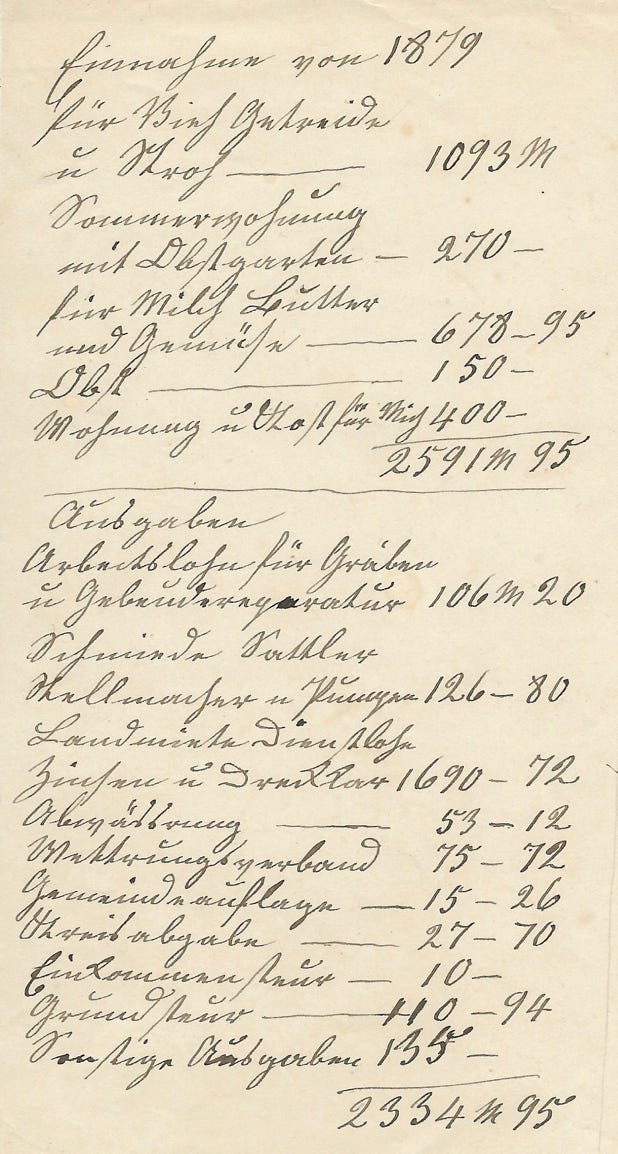 Einnahme von 1879
für Vieh Getreide
u Stroh — 1093 M
Sommerwohnung
mit Obstgarten — 270 —
für Milch Butter
und Gemüse — 678 — 95
Obst — 150 —
Wohnung u Kost für Mich 400 —
2591 M 95
Ausgaben
Arbeitslohn für Gräben
u Gebeudereparatur 106 M 20
Schmiede Sattler
Stellmacher u Pumpen 126 — 80
Landmiete Dienstlohn
Zinsen u 1690 — 72
Abwässrung — 53 — 12
Wettrungsverband 75 — 72
Gemeindeauflage — 15 — 26
Kreisabgabe — 27 — 70
Einkommensteur — 10 —
Grundsteur — 110 — 94
Sonstige Ausgaben 135 —
2334 M 95